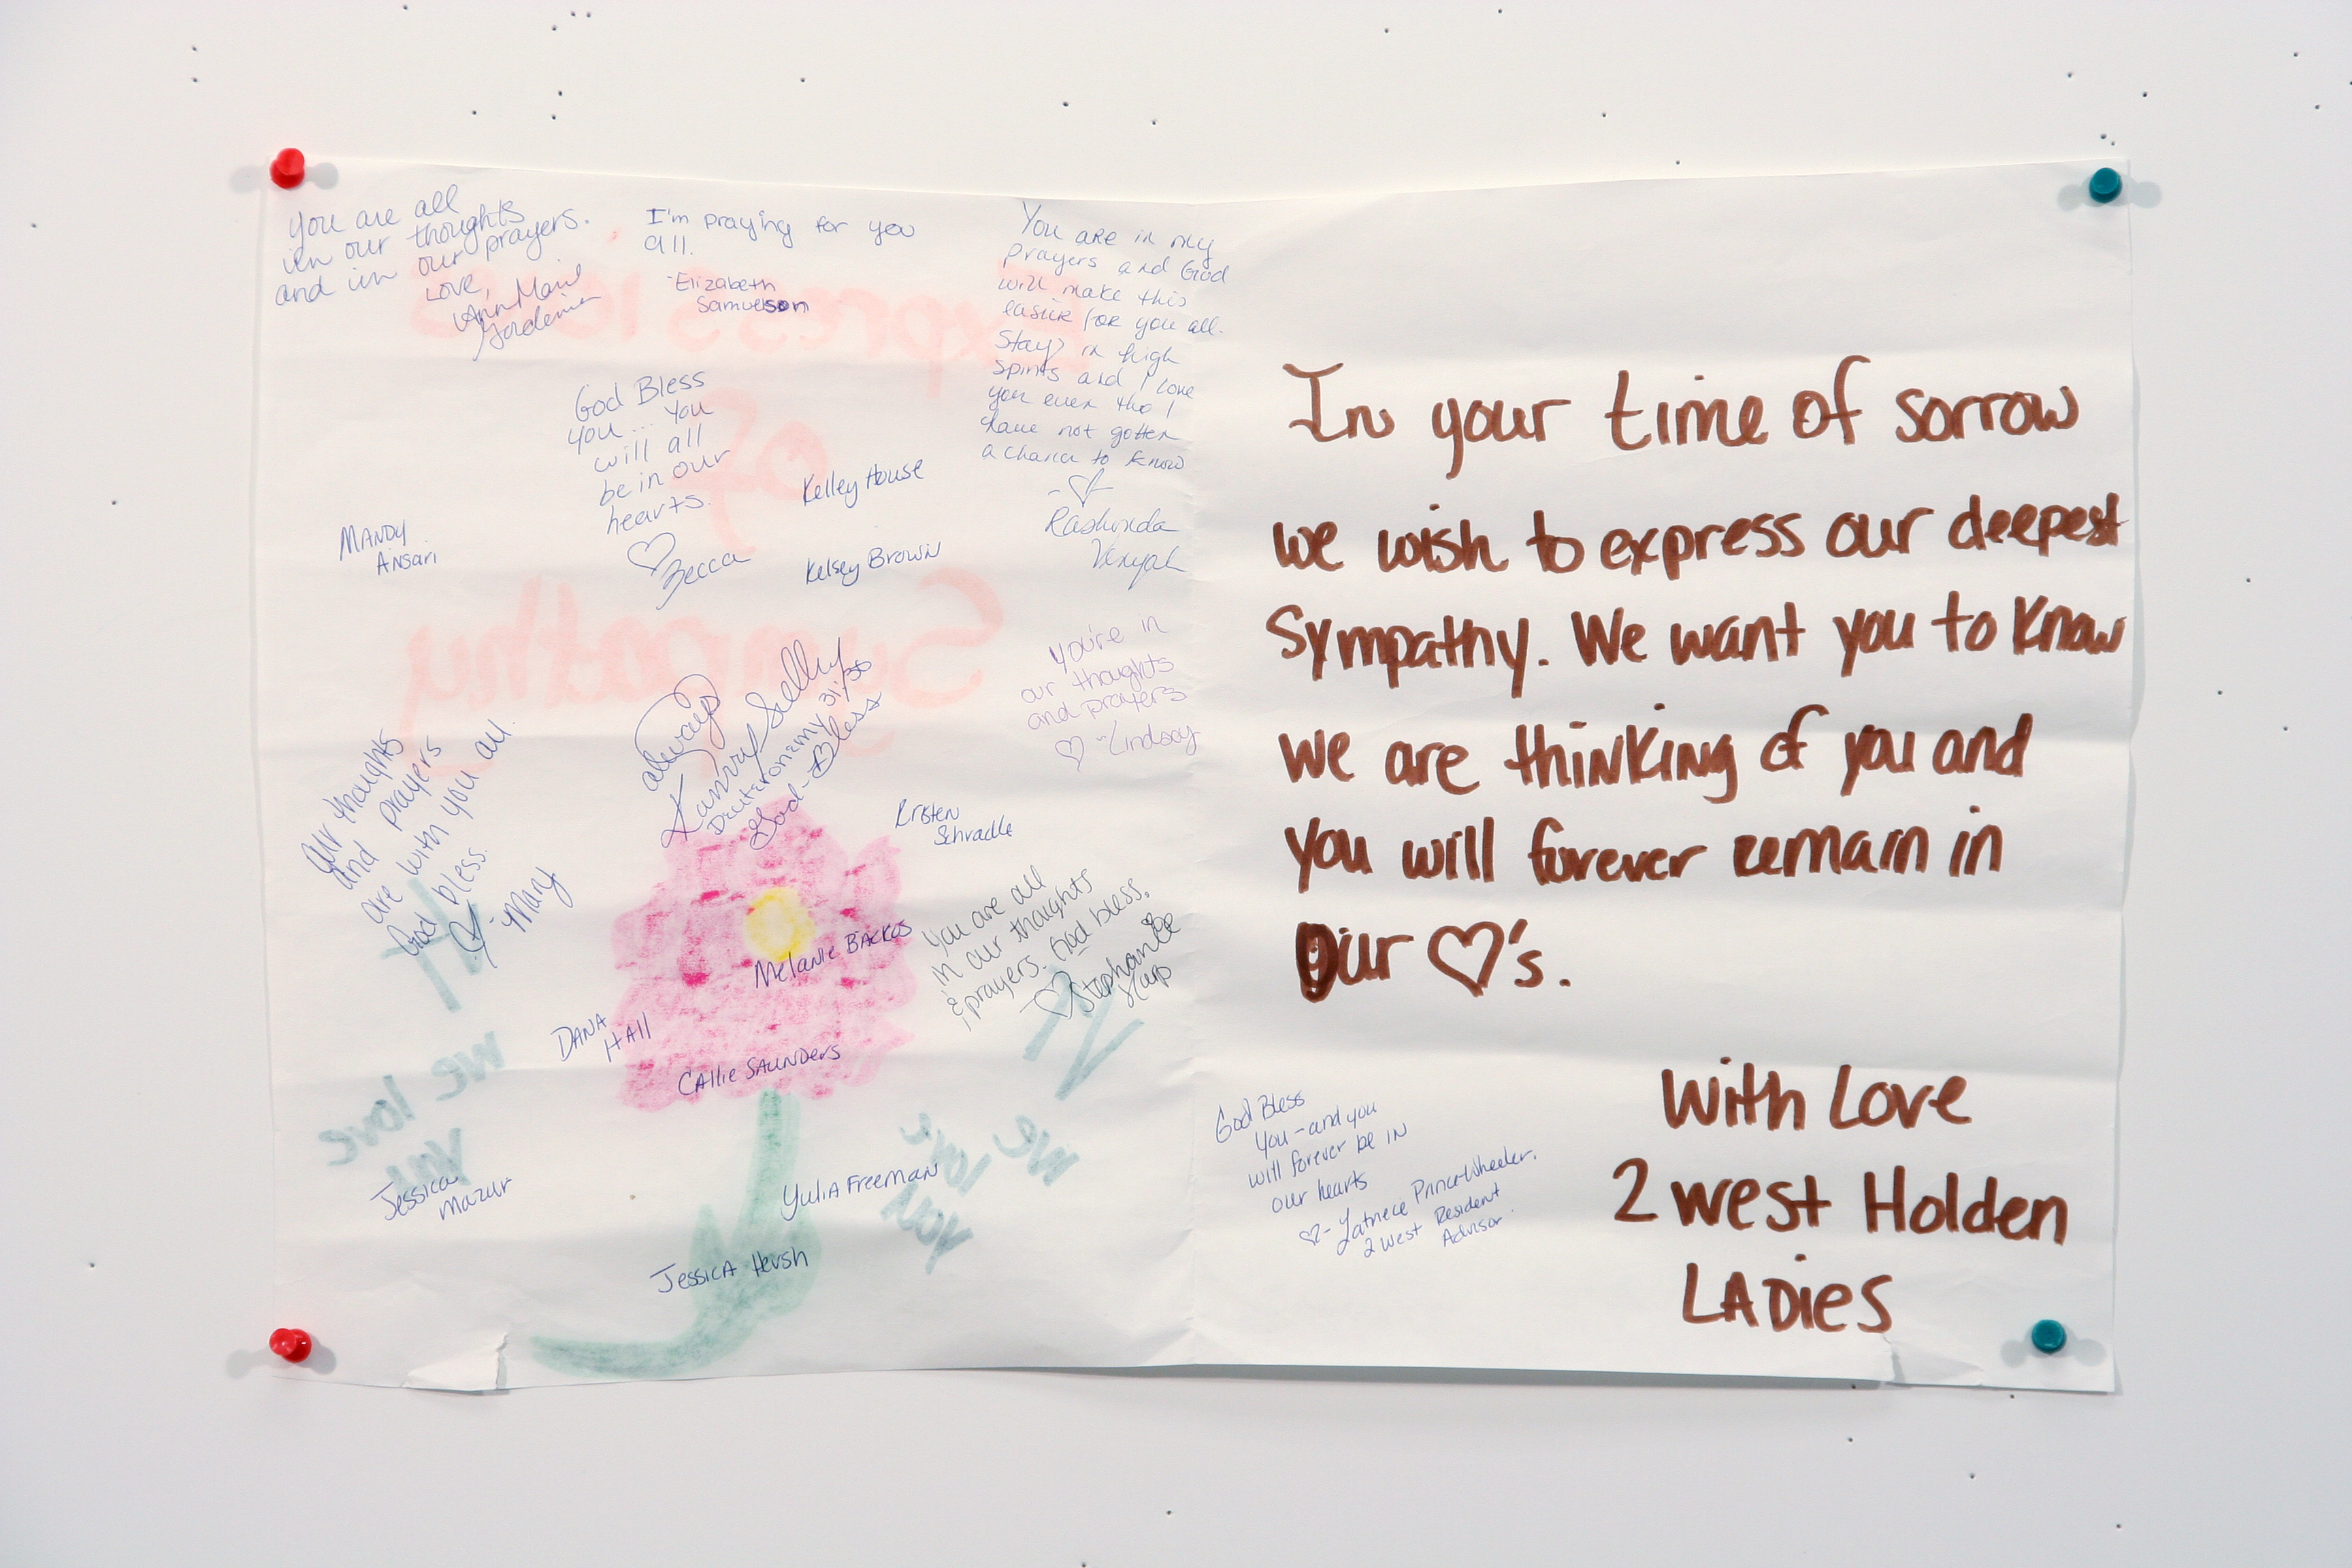 You are all
in our thoughts
and in our prayers.
Love,
I'm praying for you
all.
-Elizabeth
Samuelson
You are in my
prayers and God
will make this
easier for you all.
Stay in high
spirits and I love
you even tho I
have not gotten
a chance to know
God Bless
you... you
will all
be in our
hearts.
♡ Becca
Kelley House
Kelsey Brown
Mandy
Ansari
always
God-Bless
You're in
our thoughts
and prayers
♡ -Lindsay
Our thoughts
and prayers
are with you all.
God bless.
- Mary
Kristen
Schradle
Melanie Backos
You are all
in our thoughts
& prayers. God bless.
♡ Stephanie
Dana
Hall
Callie Saunders
Jessica
Mazur
Yulia Freeman
Jessica Hersh
Express ions
of
Sympathy
we love
you
we
love
you
In your time of sorrow
we wish to express our deepest
Sympathy. We want you to know
we are thinking of you and
you will forever remain in
Our ♡'s.
With Love
2 west Holden
LADies
God Bless
you - and you
will forever be in
our hearts
♡- Latriece Prince-Wheeler.
2 West Resident
Advisor.